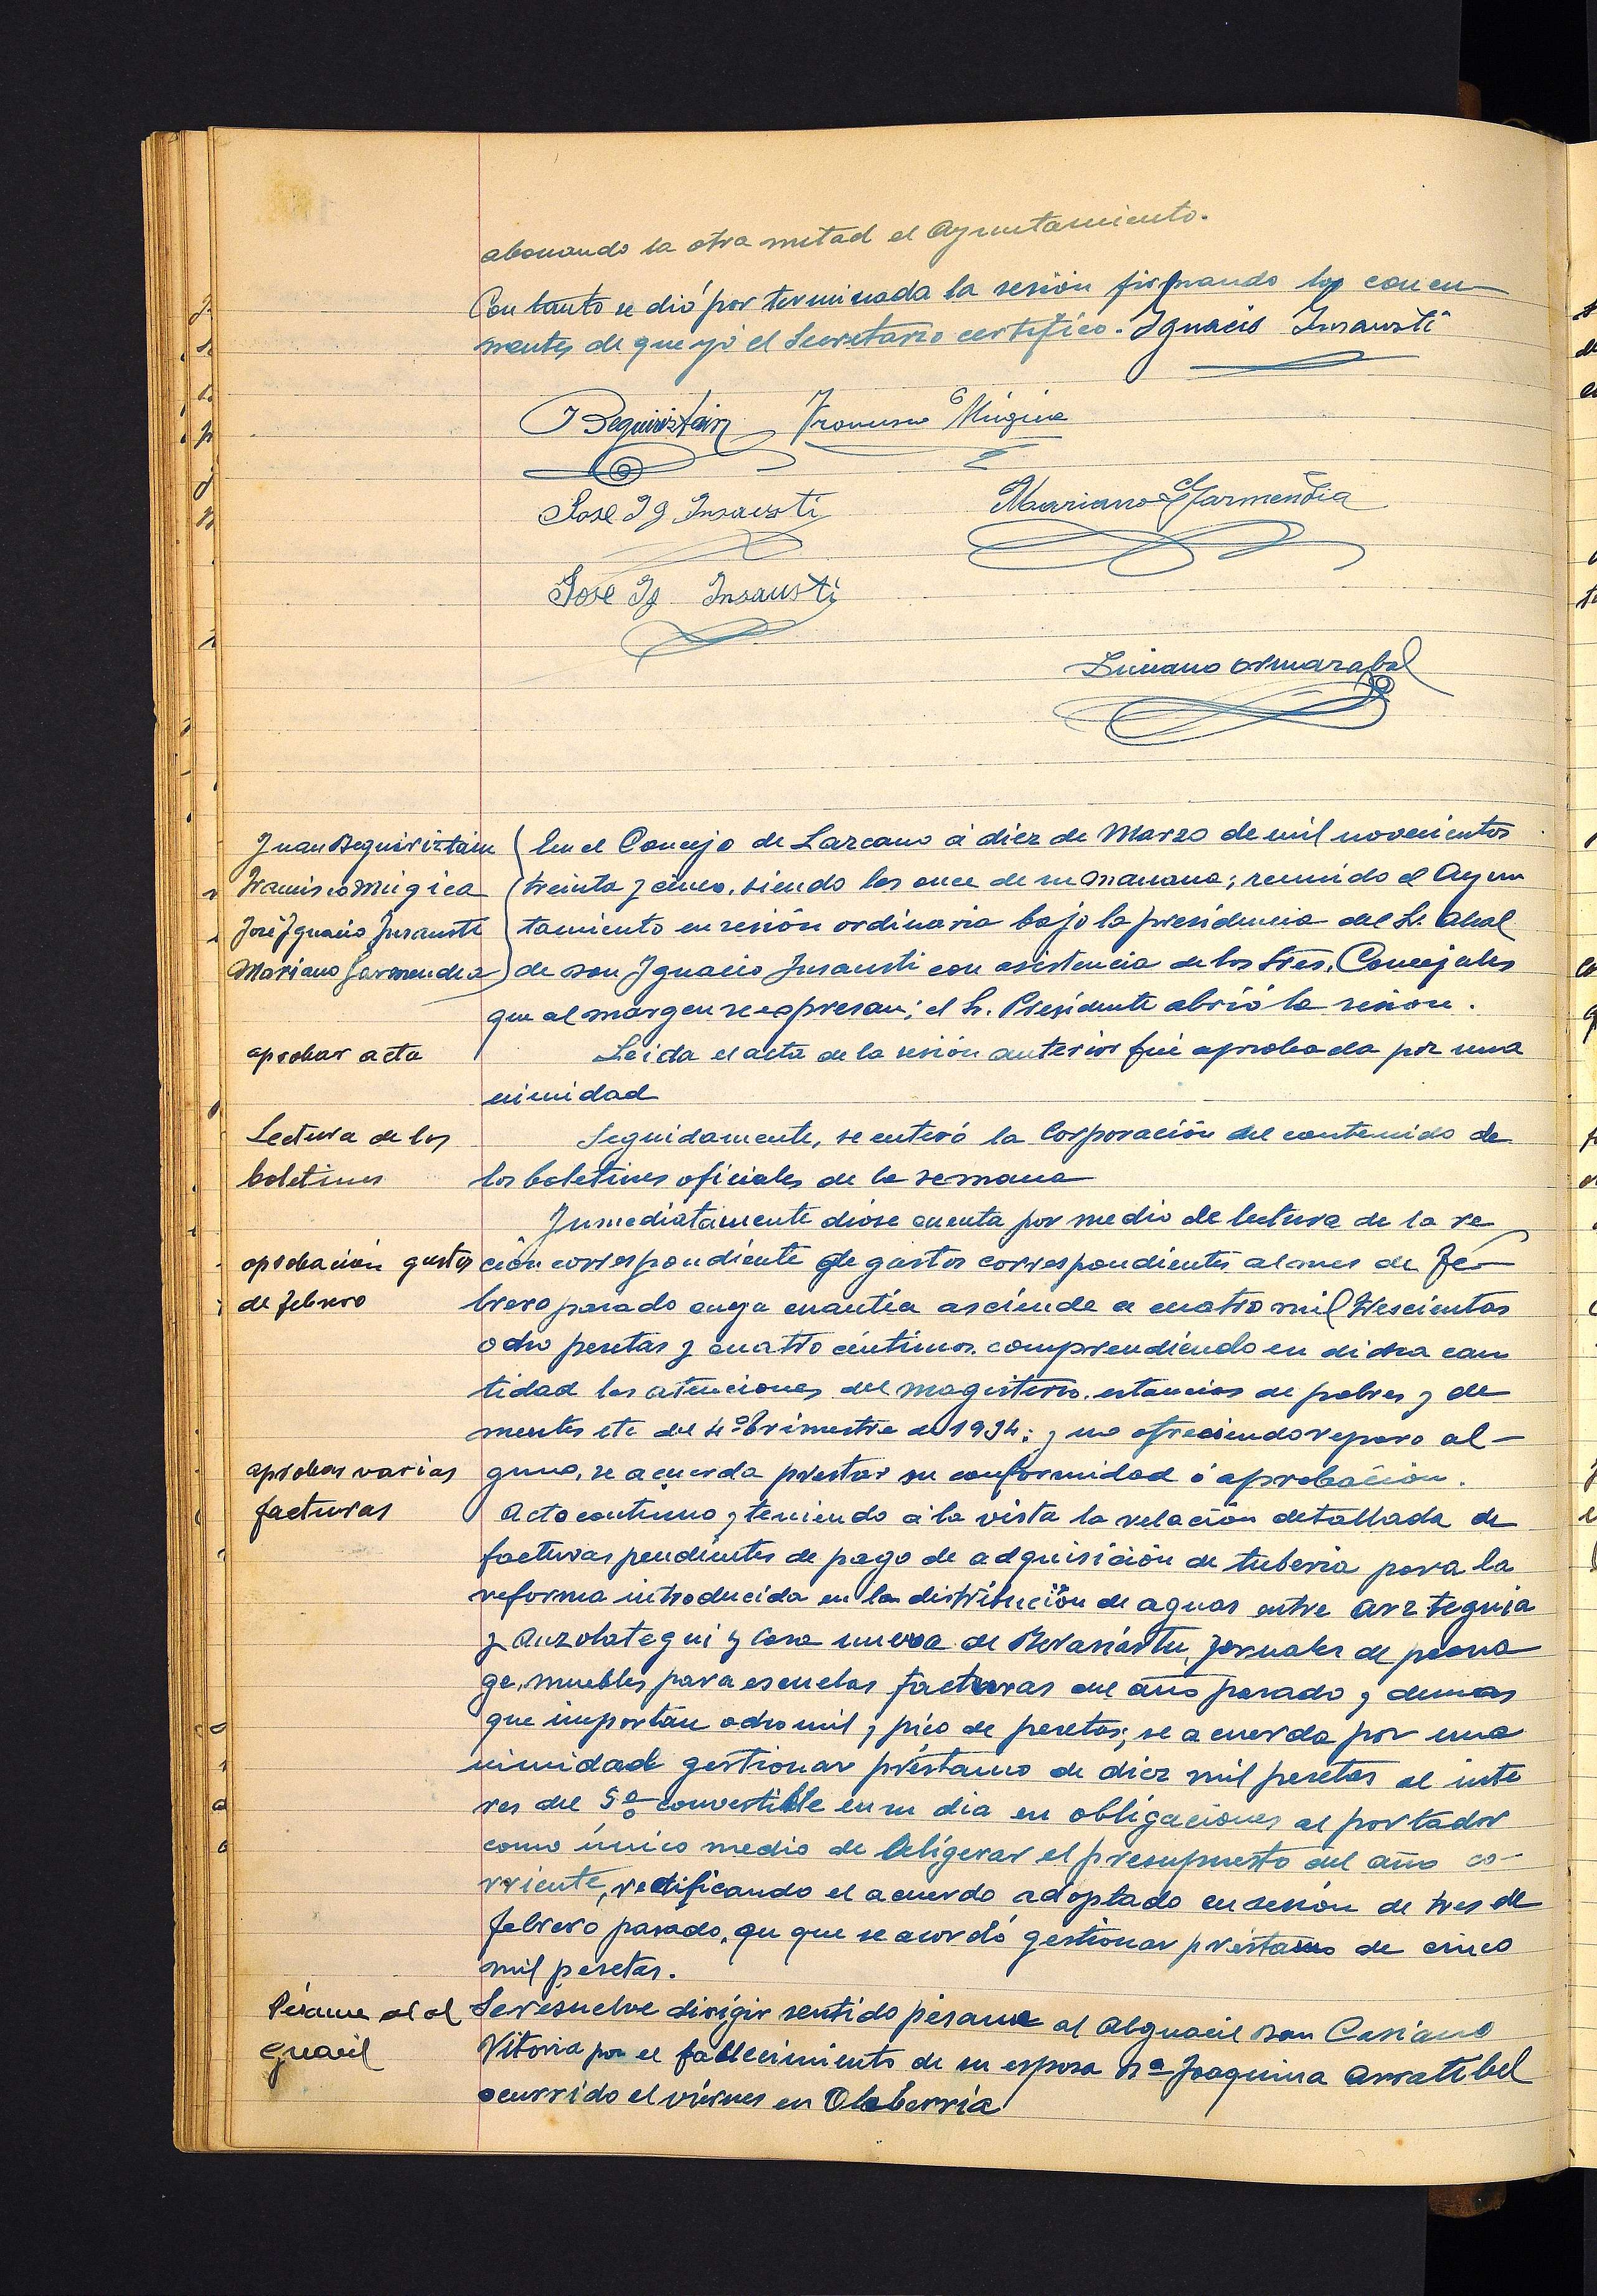 abonando la otra mitad el Ayuntamiento.
Con tanto se dió por terminada la sesión firmando los concu
rrentes de que yo el Secretario certifico. Ignacio Insausti
Beguiristain Francisco Múgica
Jose Ig Insausti Mariano Garmendia
Jose Ig Insausti
Luciano Ormazabal
Juan Beguiristain
Francisco Múgica
José Ignacio Insausti
Mariano Garmendia
En el Concejo de Lazcano á diez de Marzo de mil novecientos
treinta y cinco, siendo las once de su mañana; reunido el Ayun
tamiento en sesión ordinaria bajo la presidencia del Sr. Alcal
de don Ignacio Insausti con asistencia de los Sres. Concejales
que al margen se expresan; el Sr. Presidente abrió la sesión.
aprobar acta
Leida el acta de la sesión anterior fué aprobada por una
nimidad
Lectura de los
boletines
Seguidamente, se enteró la Corporación del contenido de
los boletines oficiales de la semana
Inmediatamente diose cuenta por medio de lectura de la re
aprobación gastos
de febrero
ción correspondiente de gastos correspondientes al mes de Fe-
brero pasado cuya cuantía asciende a cuatro mil trescientas
ocho pesetas y cuatro céntimos, comprendiendo en dicha can
tidad las atenciones del magisterio, estancias de pobres y de
mentes etc del 4º trimestre de 1934; y no ofreciendo reparo al-
guno, se acuerda prestar su conformidad ó aprobación.
aprobar varias
facturas
Acto continuo y teniendo á la vista la relación detallada de
facturas pendientes de pago de adquisición de tuberia para la
reforma introducida en la distribución de aguas entre Arzteguia
y Auzolategui y Casa nueva de Berasiartu, jornales de peona
ge, muebles para escuelas facturas del año pasado y demas
que importan ocho mil y pico de pesetas; se acuerda por una
nimidad gestionar préstamo de diez mil pesetas al inte
res del 5% convertible en su dia en obligaciones al portador
como único medio de aligerar el presupuesto del año co-
rriente, rectificando el acuerdo adoptado en sesión de tres de
febrero pasado, en que se acordó gestionar préstamo de cinco
mil pesetas.
Pésame al al
guacil
Se resuelve dirigir sentido pésame al Alguacil don Casiano
Vitoria por el fallecimiento de su esposa Dª Joaquina Arratibel
ocurrido el viernes en Olaberria